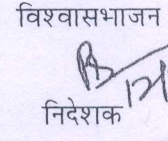 विश्वासभाजन
निदेशक